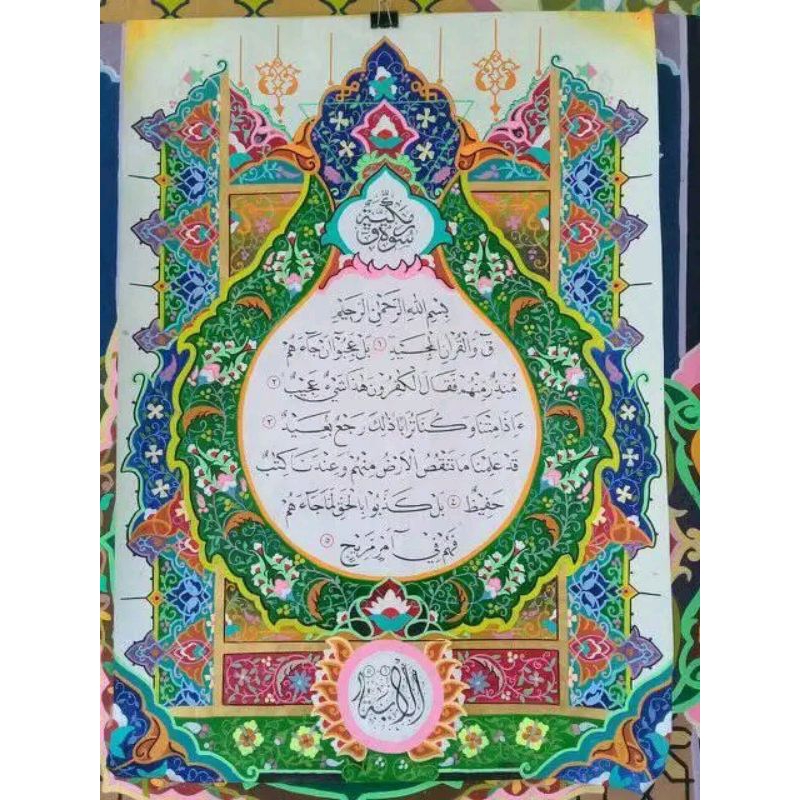 سورة ق مكية
بِسْمِ اللهِ الرَّحْمٰنِ الرَّحِيْمِ
قٓ وَالْقُرْاٰنِ الْمَجِيْدِ ۝١ بَلْ عَجِبُوْٓا اَنْ جَآءَهُمْ
مُّنْذِرٌ مِّنْهُمْ فَقَالَ الْكٰفِرُوْنَ هٰذَا شَيْءٌ عَجِيْبٌ ۝٢
ءَاِذَا مِتْنَا وَكُنَّا تُرَابًا ذٰلِكَ رَجْعٌ بَعِيْدٌ ۝٣
قَدْ عَلِمْنَا مَا تَنْقُصُ الْاَرْضُ مِنْهُمْ وَعِنْدَنَا كِتٰبٌ
حَفِيْظٌ ۝٤ بَلْ كَذَّبُوْا بِالْحَقِّ لَمَّا جَآءَهُمْ
فَهُمْ فِيْٓ اَمْرٍ مَّرِيْجٍ ۝٥
الاية